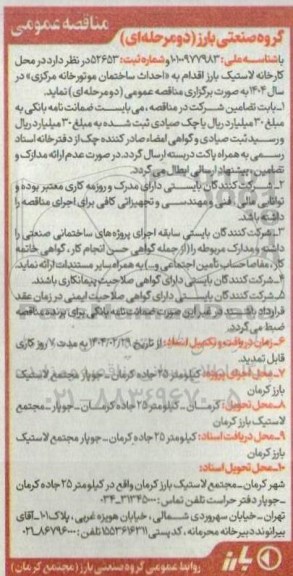 مناقصه عمومی
گروه صنعتی بارز (دو مرحله‌ای)
با شناسه ملی: ۱۰۱۰۰۹۷۷۹۸۳ و شماره ثبت: ۵۲۶۵۳ در نظر دارد در محل
کارخانه لاستیک بارز اقدام به «احداث ساختمان موتورخانه مرکزی» در
سال ۱۴۰۴ به صورت برگزاری مناقصه عمومی (دو مرحله‌ای) نماید.
۱-بابت تضامین شرکت در مناقصه، می بایست ضمانت نامه بانکی به
مبلغ ۳۰ میلیارد ریال یا چک صیادی ثبت شده به مبلغ ۳۰ میلیارد ریال
و رسید ثبت صیادی و گواهی امضاء صادر کننده چک از دفترخانه اسناد
رسمی به همراه پاکت دربسته ارسال گردد. در صورت عدم ارائه مدارک و
تضامین، پیشنهاد ارسالی ابطال می گردد.
۲- شرکت کنندگان بایستی دارای مدرک و روزمه کاری معتبر بوده و
توانایی مالی، فنی و مهندسی و تجهیزاتی کافی برای اجرای مناقصه را
داشته باشد.
۳-شرکت کنندگان بایستی سابقه اجرای پروژه‌های ساختمانی صنعتی را
داشته و مدارک مربوطه را (از جمله گواهی حسن انجام کار، گواهی خاتمه
کار، مفاصا حساب تأمین اجتماعی و...) به همراه سایر مستندات ارائه نماید.
۴-شرکت کنندگان بایستی دارای گواهی صلاحیت پیمانکاری باشند.
۵-شرکت کنندگان بایستی دارای گواهی صلاحیت ایمنی در زمان عقد
قرارداد باشند در غیر این صورت ضمانت نامه بانکی برای برنده مناقصه
ضبط می گردد.
۶-زمان دریافت و تکمیل اسناد: از تاریخ ۱۴۰۴/۰۲/۲۹ به مدت ۷ روز کاری
قابل تمدید.
۷-محل اجرای پروژه: کیلومتر ۲۵ جاده کرمان - جوپار مجتمع لاستیک
بارز کرمان
۸-محل تحویل: کرمان - کیلومتر ۲۵ جاده کرمان - جوپار - مجتمع
لاستیک بارز کرمان
۹-محل دریافت اسناد: کیلومتر ۲۵ جاده کرمان - جوپار مجتمع لاستیک
بارز کرمان
۱۰-محل تحویل اسناد:
شهر کرمان - مجتمع لاستیک بارز کرمان واقع در کیلومتر ۲۵ جاده کرمان
- جوپار دفتر حراست تلفن تماس: ۳۱۳۴۵۰۰۰-۰۳۴
تهران - خیابان سهروردی شمالی، خیابان هویزه غربی، پلاک ۱۰۱ - آقای
بیرانوند دبیرخانه محرمانه، کدپستی ۱۵۵۳۶۱۶۳۱۱ تلفن: ۸۶۷۹۶۰۰۰-۰۲۱
بارز روابط عمومی گروه صنعتی بارز (مجتمع کرمان)